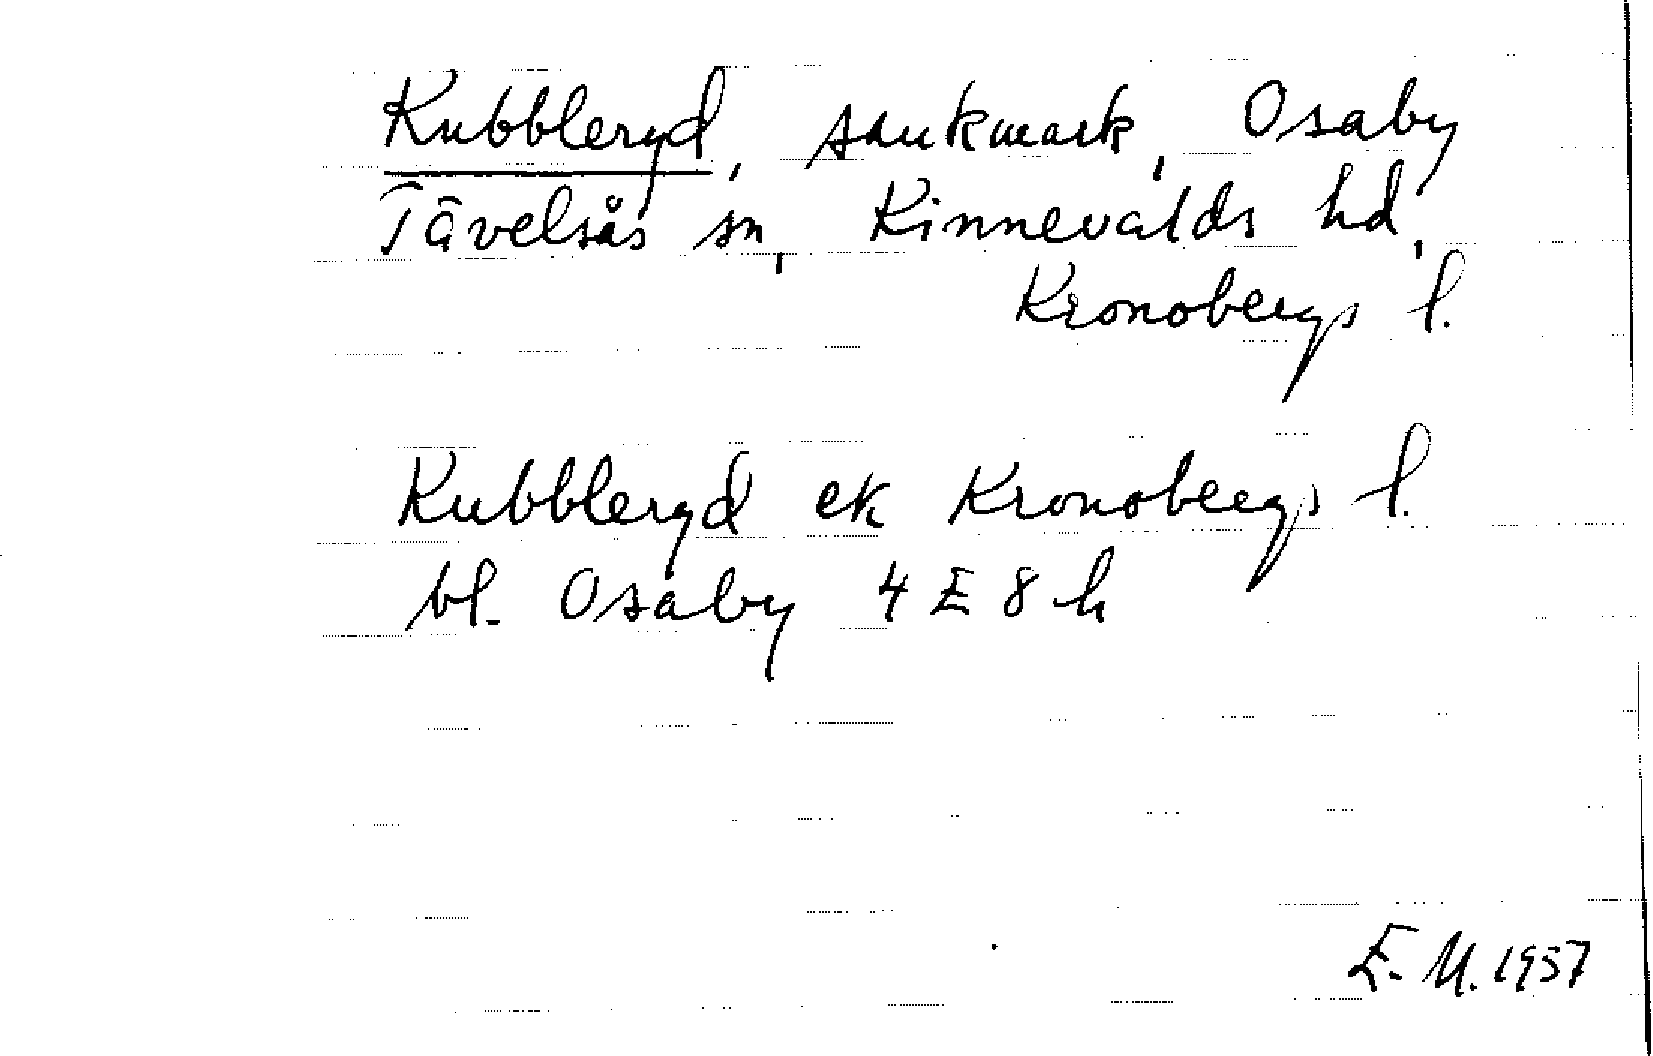 Kubbleryd, sankmark, Osaby
Tävelsås sn, Kinnevalds hd,
Kronobergs l.
Kubbleryd ek Kronobergs l.
bl. Osaby 4 E 8 h
E. M. 1957